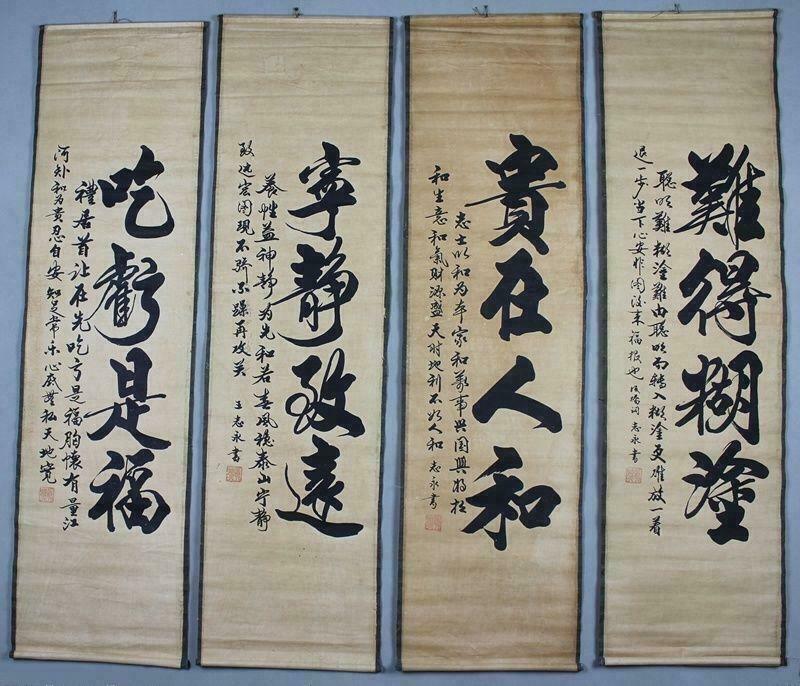 難得糊塗
聰明難糊塗難由聰明而轉入糊塗更難放一着
退一步當下心安非圖後來福報也 志永書
貴在人和
志士以和为本家和萬事興国興將相
和生意和氣財源盛天時地利不如人和 志永書
寧靜致遠
養性益神靜为先和若春風穩泰山宁靜
致远宏图現不骄不躁再攻关 王志永書
吃虧是福
禮居首让在先吃亏是福胸懷有量江
河 和为貴忍自安知足常乐心底無私天地寬